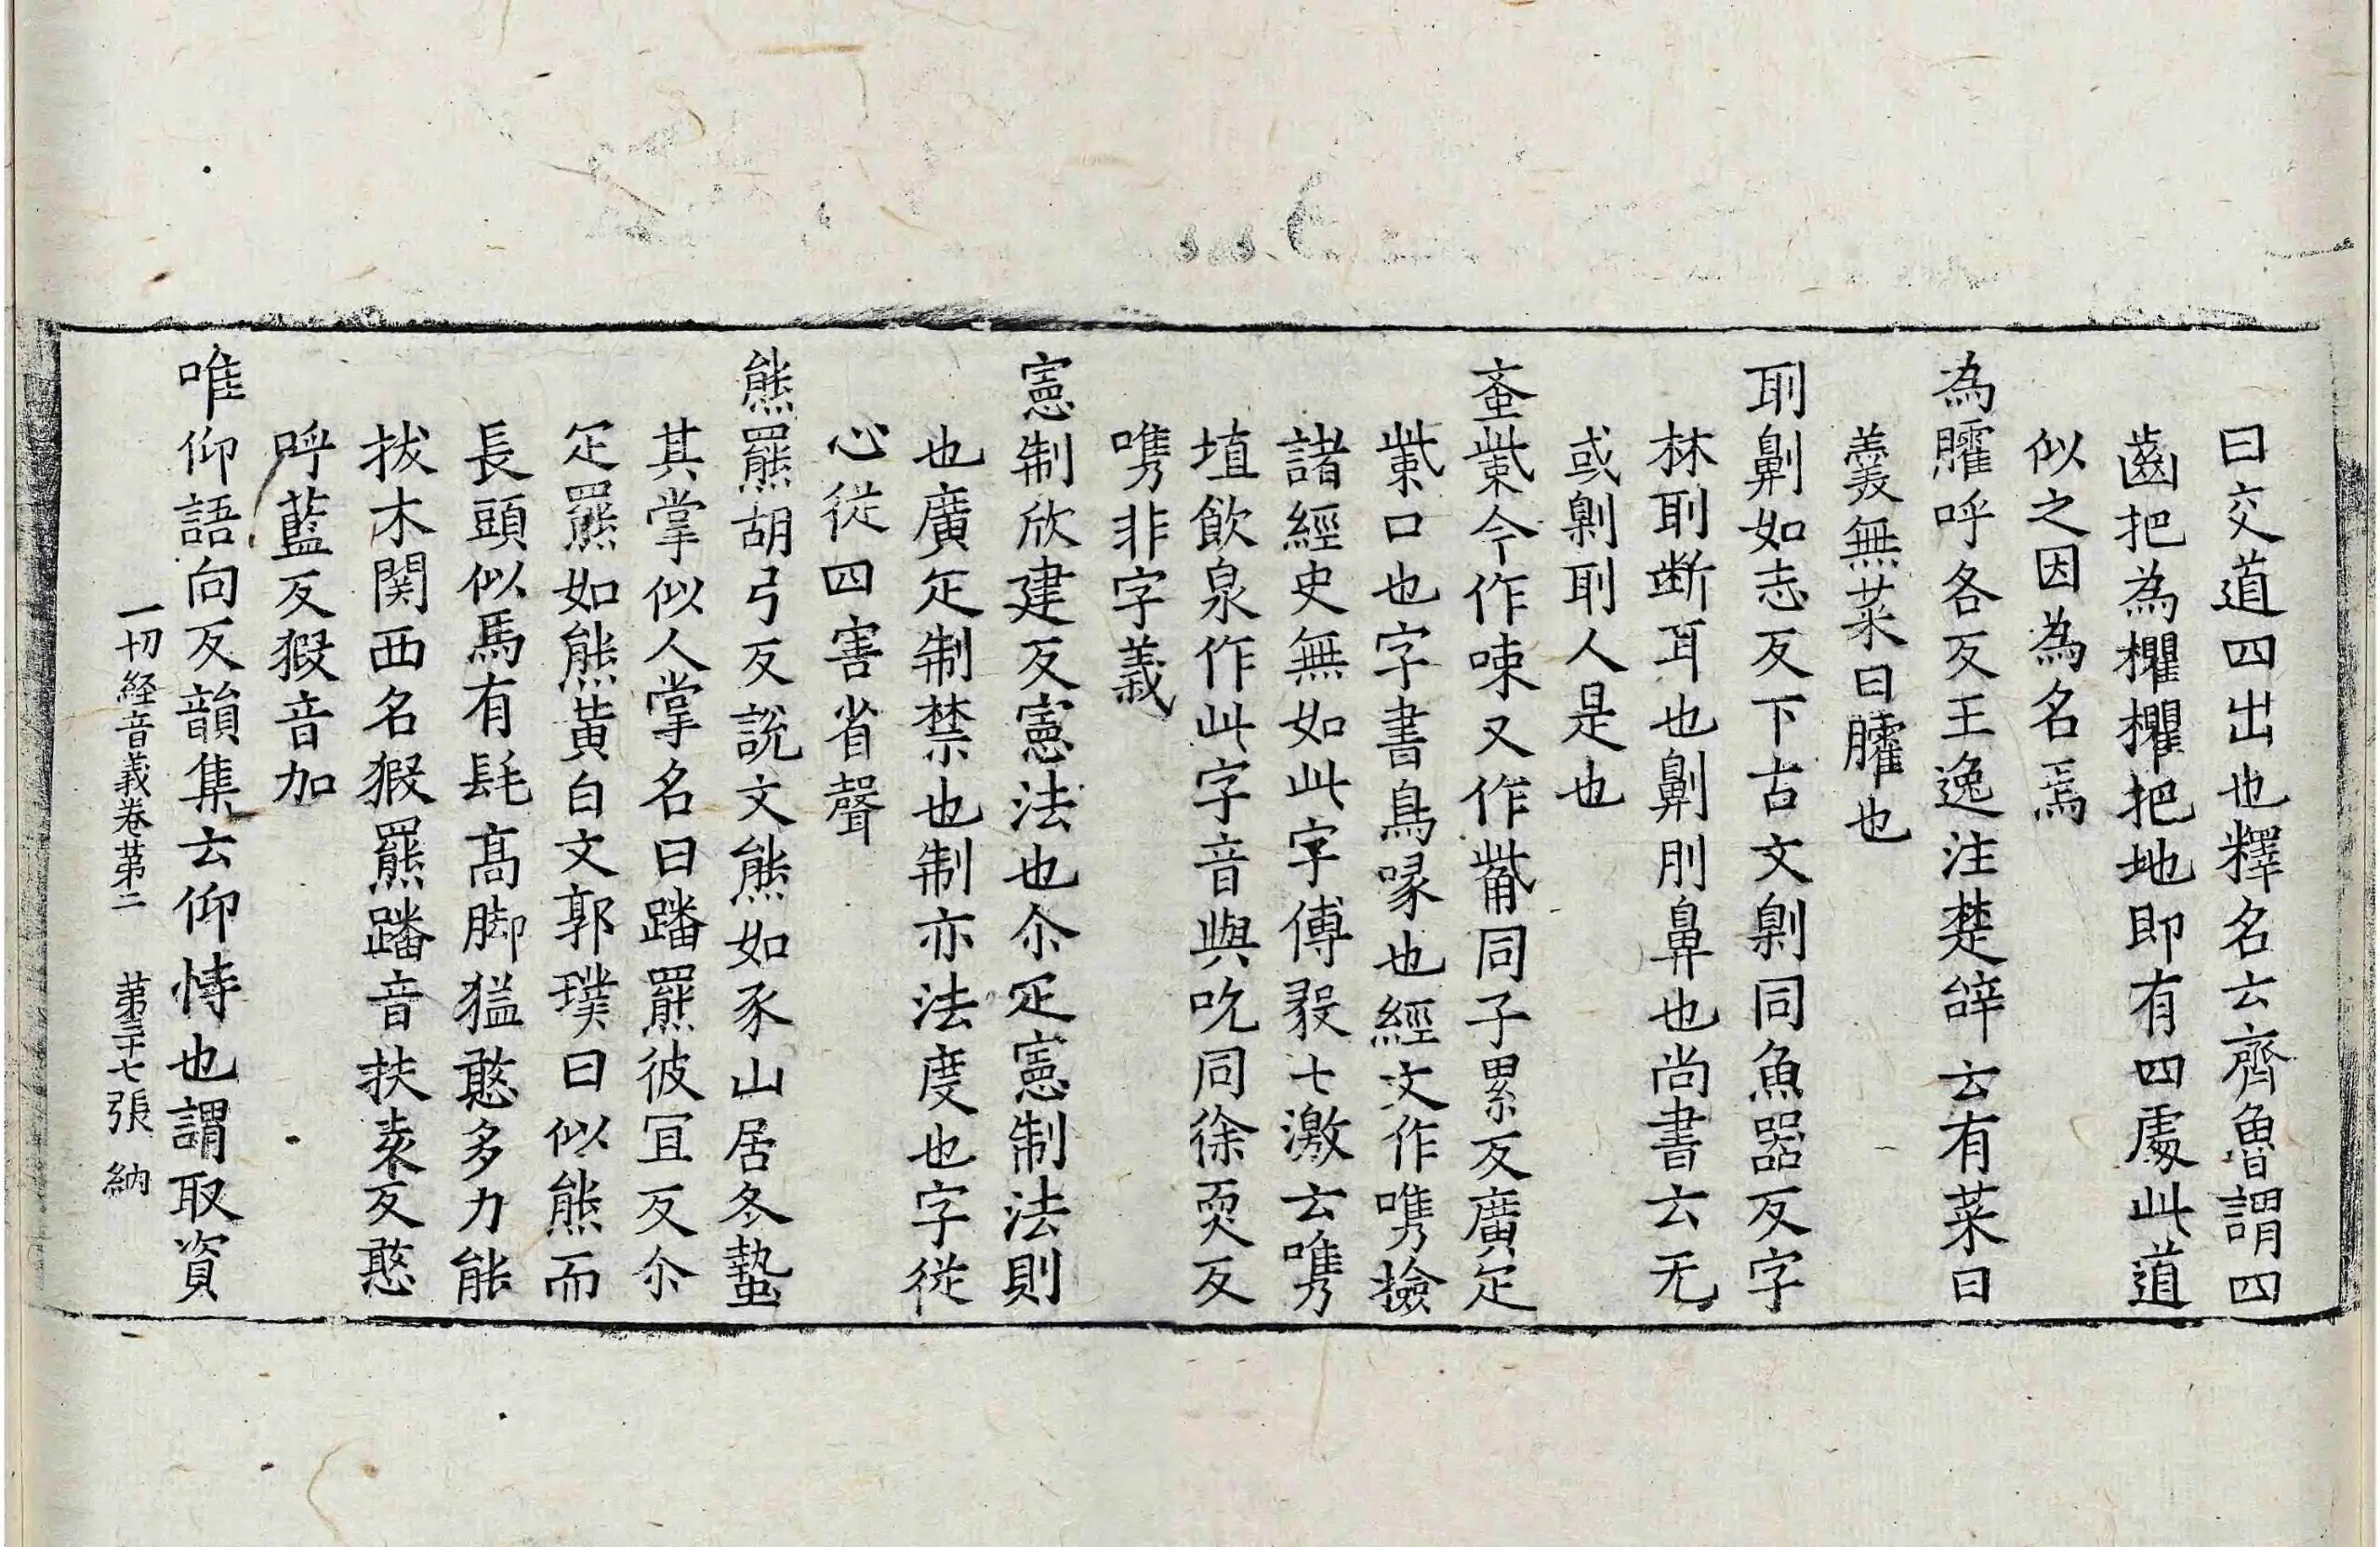 曰交道四出也釋名云齊魯謂四
齒把為欋欋把地即有四處此道
似之因為名焉
為臛呼各反王逸注楚辝云有菜曰
羹無菜曰臛也
刵劓如志反下古文劓同魚器反字
林刵断耳也劓刖鼻也尚書云无
或劓刵人是也
蚉㭰今作㖩又作觜同子累反廣疋
㭰口也字書鳥喙也經文作嶲撿
諸經史無如此字傅毅七激云嶲
埴飲泉作此字音與吮同徐耎反
嶲非字義
憲制欣建反憲法也尒疋憲制法則
也廣疋制禁也制亦法度也字從
心從四害省聲
熊羆胡弓反說文熊如豕山居冬蟄
其掌似人掌名曰蹯羆彼冝反尒
疋羆如熊黃白文郭璞曰似熊而
長頭似馬有髦高脚猛憨多力能
拔木関西名猳羆蹯音扶袁反憨
呼藍反猳音加
唯仰語向反韻集云仰恃也謂取資
一切経音義卷苐二 苐三十七張 納